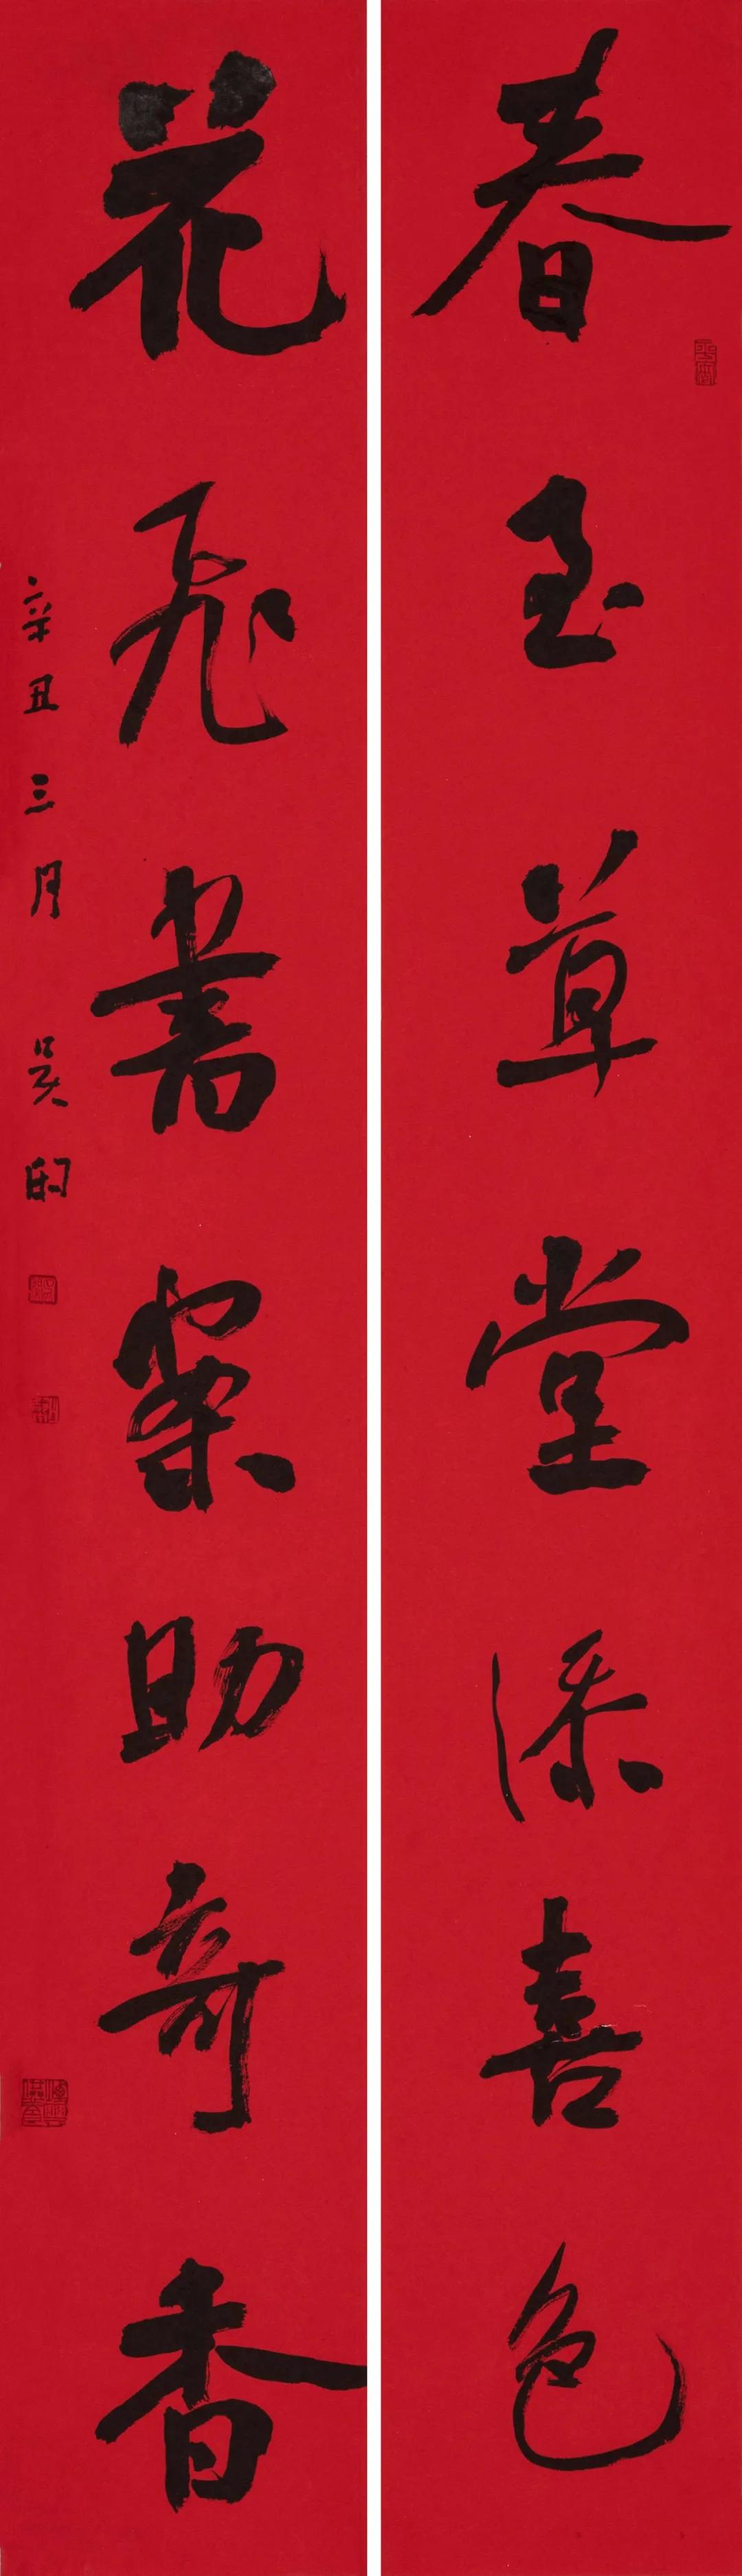 春至草堂添喜色
花飛書案助奇香
辛丑三月 吴